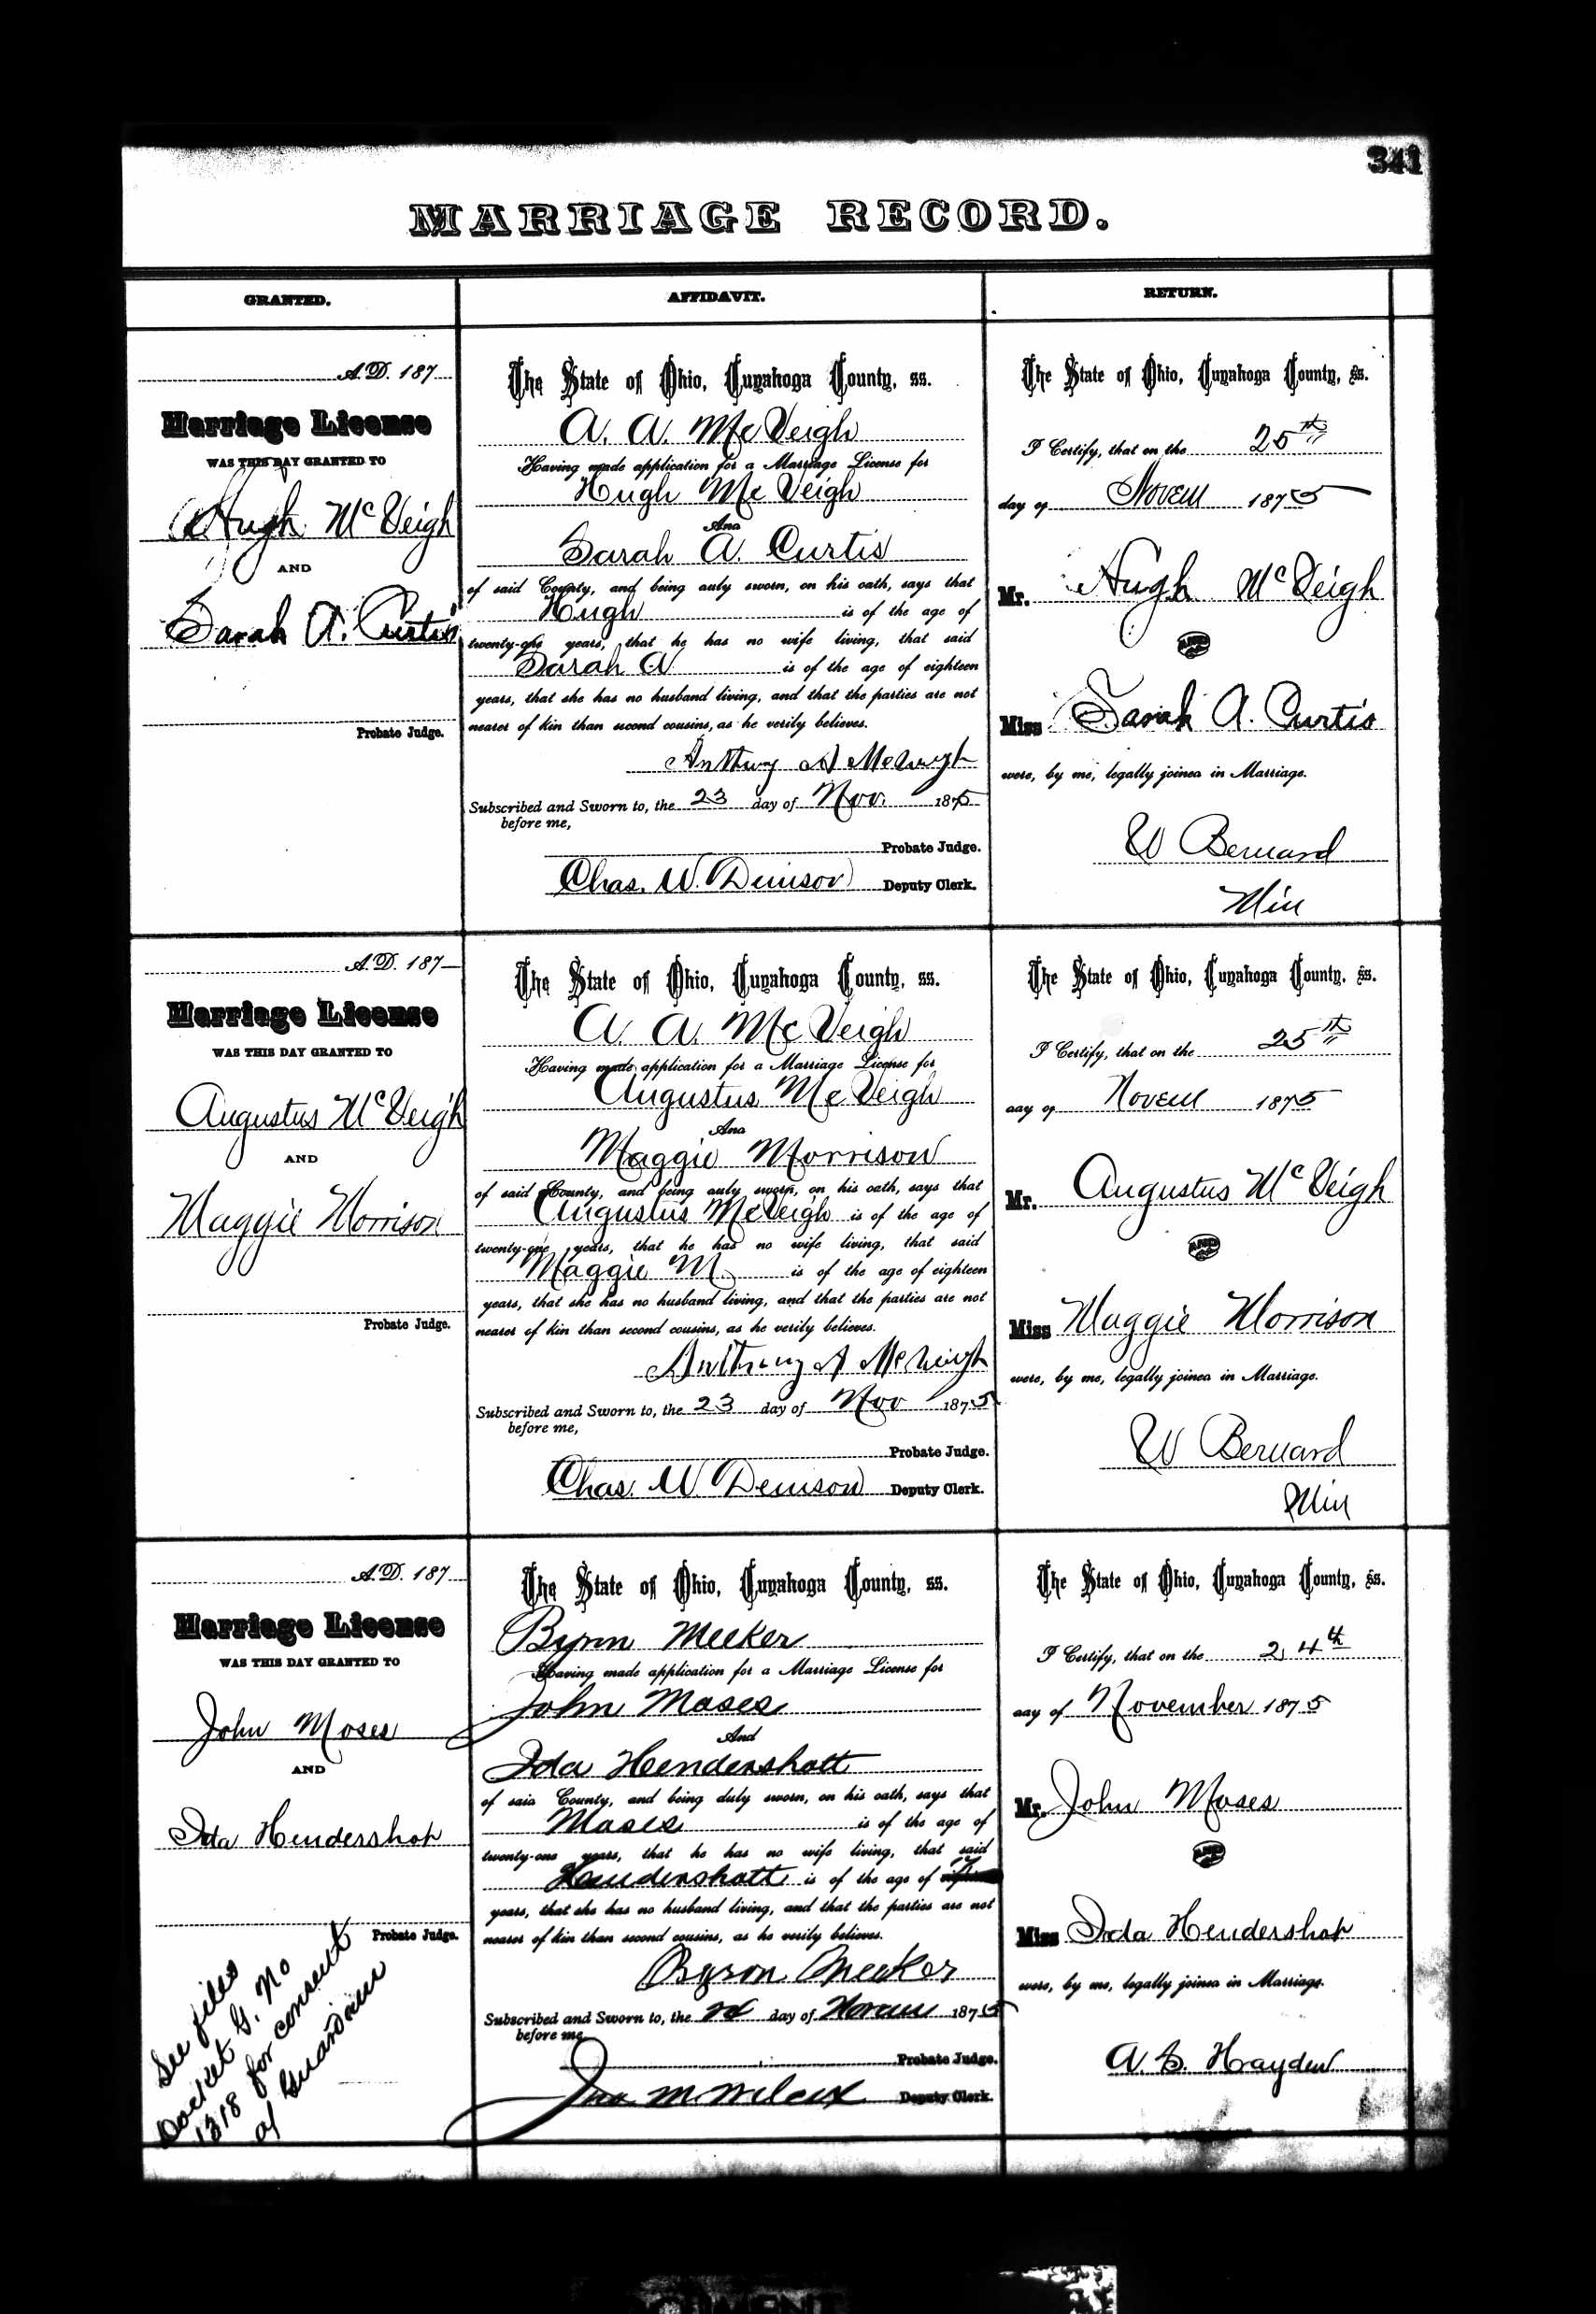 341
MARRIAGE RECORD.
GRANTED.
AFFIDAVIT.
RETURN.
A.D. 187
Marriage License
WAS THIS DAY GRANTED TO
Hugh McVeigh
AND
Sarah A. Curtis
Probate Judge.
The State of Ohio, Cuyahoga County, ss.
A. A. McVeigh
Having made application for a Marriage License for
Hugh McVeigh
And
Sarah A. Curtis
of said County, and being duly sworn, on his oath, says that
Hugh is of the age of
twenty-one years, that he has no wife living, that said
Sarah A is of the age of eighteen
years, that she has no husband living, and that the parties are not
nearer of kin than second cousins, as he verily believes.
Anthony A McVeigh
Subscribed and Sworn to, the 23 day of Nov. 1875
before me,
Probate Judge.
Chas. W. Denison Deputy Clerk.
The State of Ohio, Cuyahoga County, ss.
I Certify, that on the 25th
day of Novem 1875
Mr. Hugh McVeigh
AND
Miss Sarah A. Curtis
were, by me, legally joined in Marriage.
W Bernard
Min
A.D. 187
Marriage License
WAS THIS DAY GRANTED TO
Augustus McVeigh
AND
Maggie Morrison
Probate Judge.
The State of Ohio, Cuyahoga County, ss.
A. A. McVeigh
Having made application for a Marriage License for
Augustus McVeigh
And
Maggie Morrison
of said County, and being duly sworn, on his oath, says that
Augustus McVeigh is of the age of
twenty-one years, that he has no wife living, that said
Maggie M. is of the age of eighteen
years, that she has no husband living, and that the parties are not
nearer of kin than second cousins, as he verily believes.
Anthony A McVeigh
Subscribed and Sworn to, the 23 day of Nov 1875
before me,
Probate Judge.
Chas. W. Denison Deputy Clerk.
The State of Ohio, Cuyahoga County, ss.
I Certify, that on the 25th
day of Novem 1875
Mr. Augustus McVeigh
AND
Miss Maggie Morrison
were, by me, legally joined in Marriage.
W Bernard
Min
A.D. 187
Marriage License
WAS THIS DAY GRANTED TO
John Moses
AND
Ida Hendershot
Probate Judge.
See files
Docket G. No
1318 for consent
of Guardian
The State of Ohio, Cuyahoga County, ss.
Byron Meeker
Having made application for a Marriage License for
John Moses
And
Ida Hendershott
of said County, and being duly sworn, on his oath, says that
Moses is of the age of
twenty-one years, that he has no wife living, that said
Hendershott is of the age of
years, that she has no husband living, and that the parties are not
nearer of kin than second cousins, as he verily believes.
Byron Meeker
Subscribed and Sworn to, the day of Novem 1875
before me,
Probate Judge.
Jno M Wilcox Deputy Clerk.
The State of Ohio, Cuyahoga County, ss.
I Certify, that on the 24th
day of November 1875
Mr. John Moses
AND
Miss Ida Hendershot
were, by me, legally joined in Marriage.
A. S. Hayden